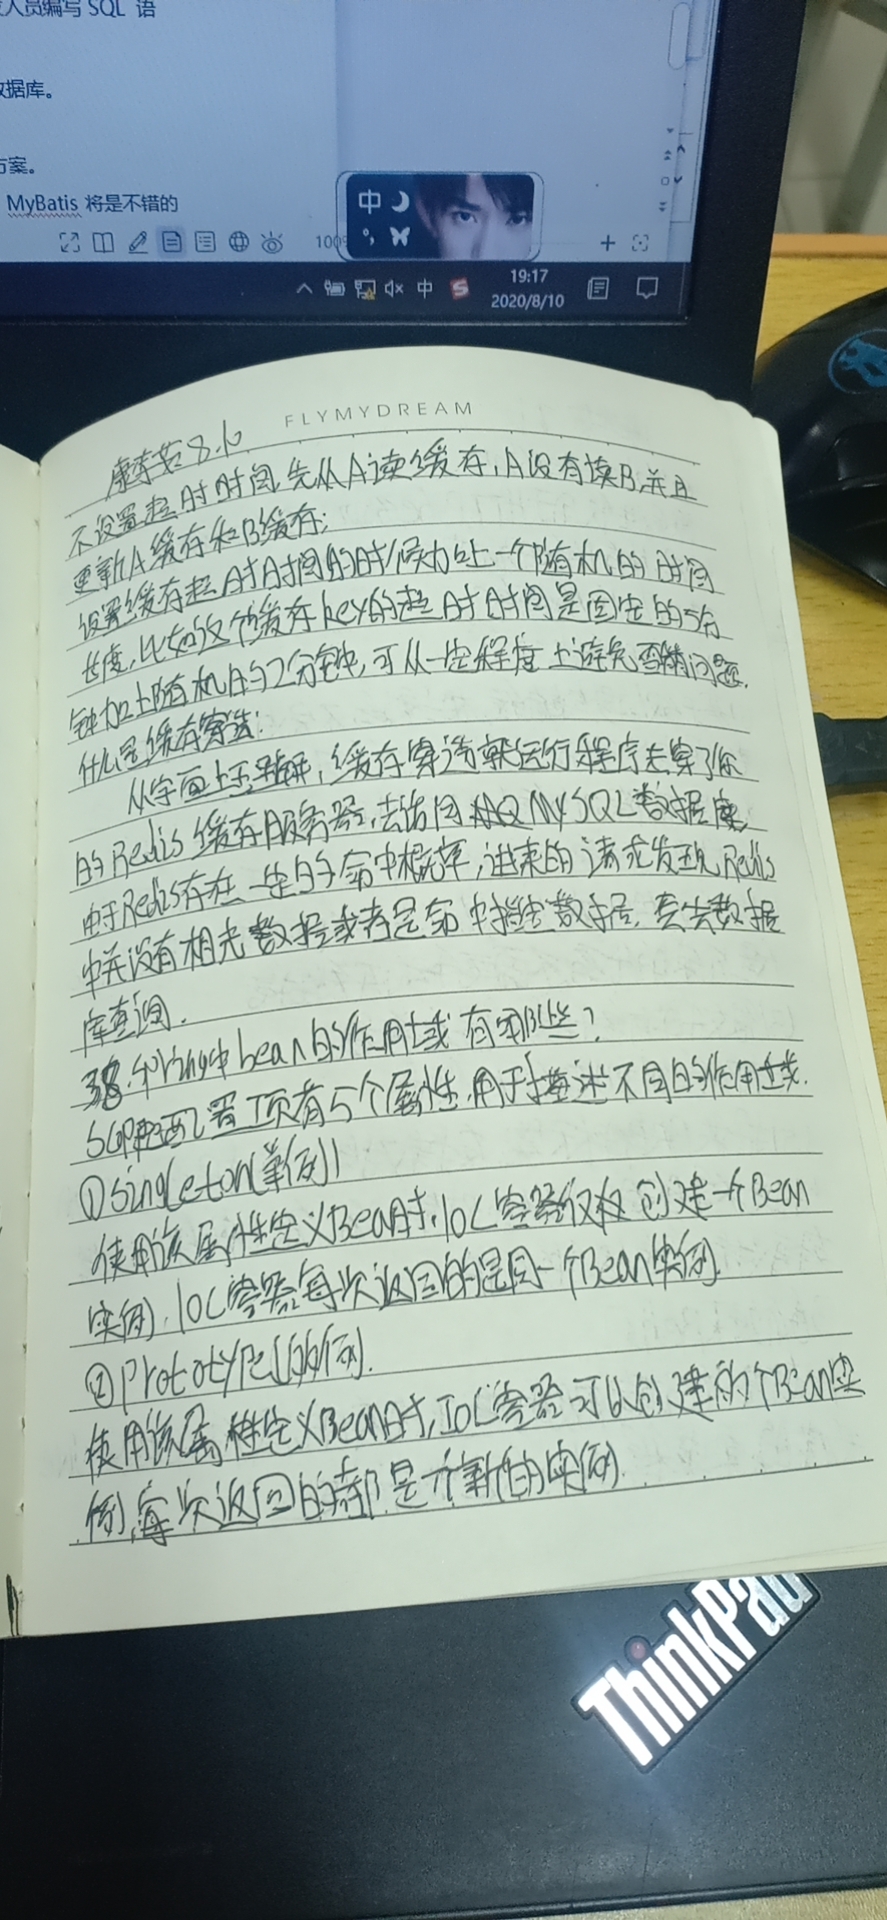 人员编写 SQL 语
数据库。
方案。
MyBatis 将是不错的
中
100%
中
19:17
2020/8/10
FLYMYDREAM
8.10
不设置超时时间,先从A读缓存,A没有读B,并且
更新A缓存和B缓存;
设置缓存超时时间的时候加上一个随机的时间
长度,比如这个缓存key的超时时间是固定的5分
钟加上随机的2分钟,可从一定程度上避免雪崩问题.
什么是缓存穿透:
从字面上理解,缓存穿透就运行程序去穿了你
的Redis缓存服务器,去访问MySQL数据库,
由于Redis存在一定的命中概率,进来的请求发现Redis
中并没有相关数据或者是命中数据,要去数据
库查询.
38.Spring中bean的作用域有哪些?
配置项有5个属性,用于描述不同的作用域.
①singleton(单例)
使用该属性定义Bean时,IOC容器仅仅创建一个Bean
实例,IOC容器每次返回的是同一个Bean实例.
②Prototype(例).
使用该属性定义Bean时,IOC容器可以创建的个Bean实
例,每次返回的都是个新的实例.
ThinkPad